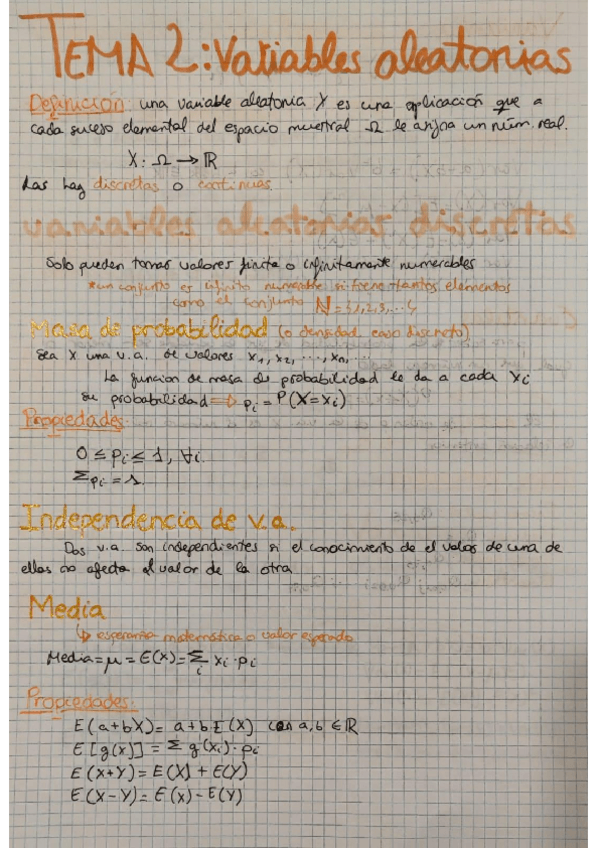 TEMA 2: Variables aleatorias
Definición: una variable aleatoria X es una aplicación que a
cada suceso elemental del espacio muestral Ω le asigna un núm. real.
X: Ω → ℝ
Las hay discretas o continuas.
variables aleatorias discretas
Solo pueden tomar valores finitos o infinitamente numerables
*un conjunto es infinito numerable si tiene tantos elementos
como el conjunto N = {1,2,3,...}
Masa de probabilidad (o densidad caso discreto)
Sea X una v.a. de valores x₁, x₂, ..., xn, ...
La función de masa de probabilidad le da a cada xi
su probabilidad ⇒ pi = P(X=xi)
Propiedades:
0 ≤ pi ≤ 1, ∀i
Σpi = 1.
Independencia de v.a.
Dos v.a. son independientes si el conocimiento de el valor de una de
ellas no afecta al valor de la otra
Media
↳ esperanza matemática o valor esperado
Media = μ = E(X) = Σ xi · pi
i
Propiedades:
E(a+bX) = a+bE(X) con a,b ∈ ℝ
E[g(x)] = Σ g(xi) · pi
E(X+Y) = E(X) + E(Y)
E(X-Y) = E(X) - E(Y)